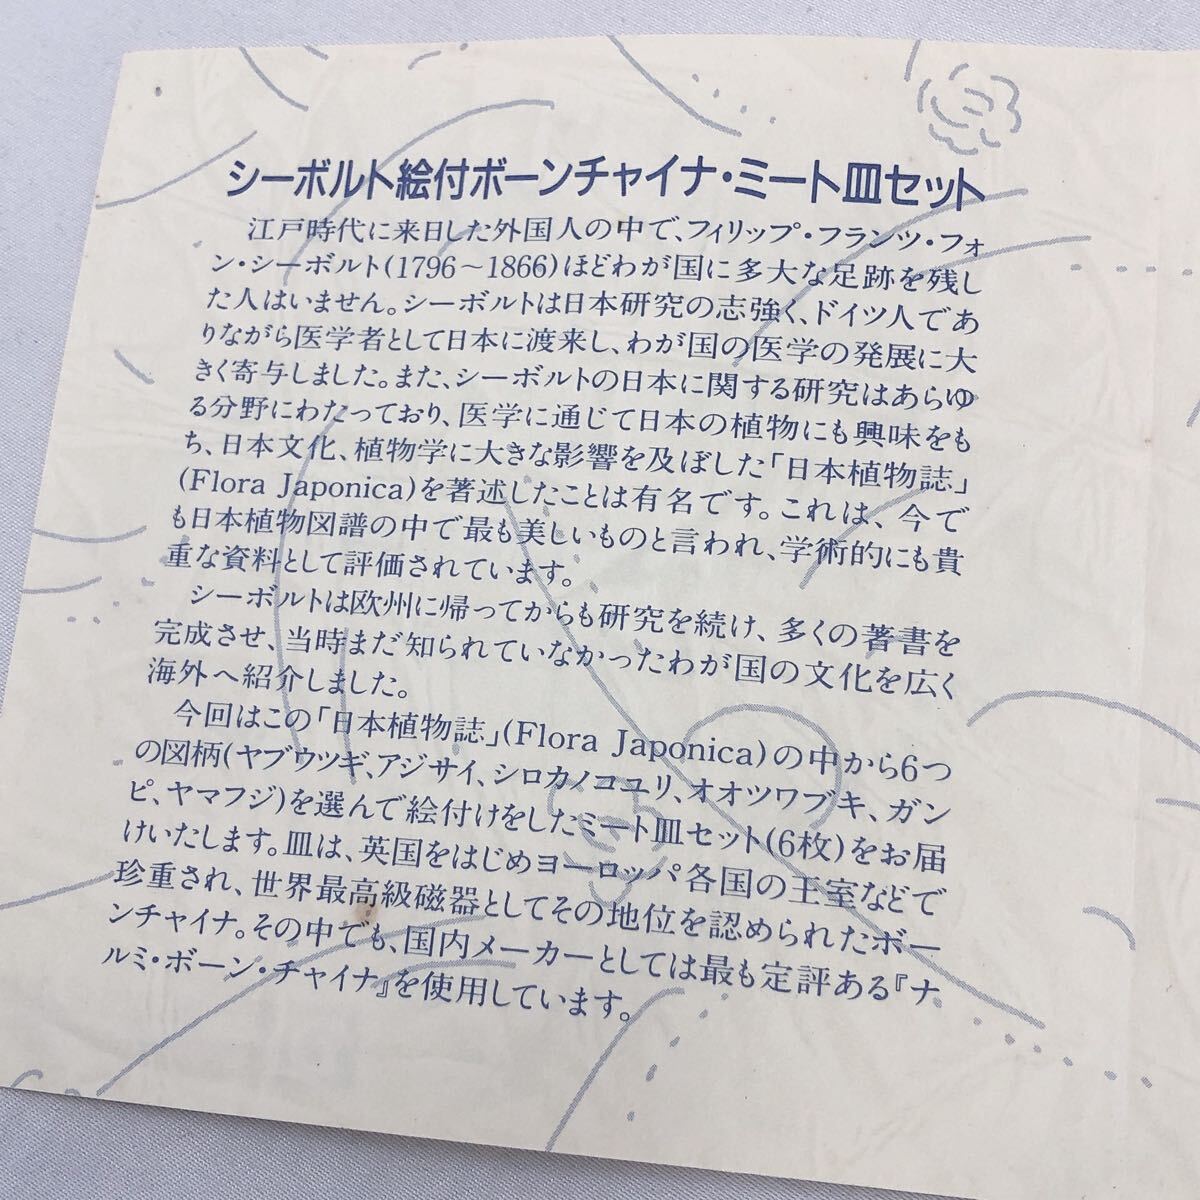 シーボルト絵付ボーンチャイナ・ミート皿セット
江戸時代に来日した外国人の中で、フィリップ・フランツ・フォ
ン・シーボルト(1796～1866)ほどわが国に多大な足跡を残し
た人はいません。シーボルトは日本研究の志強く、ドイツ人であ
りながら医学者として日本に渡来し、わが国の医学の発展に大
きく寄与しました。また、シーボルトの日本に関する研究はあらゆ
る分野にわたっており、医学に通じて日本の植物にも興味をも
ち、日本文化、植物学に大きな影響を及ぼした「日本植物誌」
(Flora Japonica)を著述したことは有名です。これは、今で
も日本植物図譜の中で最も美しいものと言われ、学術的にも貴
重な資料として評価されています。
シーボルトは欧州に帰ってからも研究を続け、多くの著書を
完成させ、当時まだ知られていなかったわが国の文化を広く
海外へ紹介しました。
今回はこの「日本植物誌」(Flora Japonica)の中から6つ
の図柄(ヤブウツギ、アジサイ、シロカノコユリ、オオツワブキ、ガン
ピ、ヤマフジ)を選んで絵付けをしたミート皿セット(6枚)をお届
けいたします。皿は、英国をはじめヨーロッパ各国の王室などで
珍重され、世界最高級磁器としてその地位を認められたボー
ンチャイナ。その中でも、国内メーカーとしては最も定評ある『ナ
ルミ・ボーン・チャイナ』を使用しています。